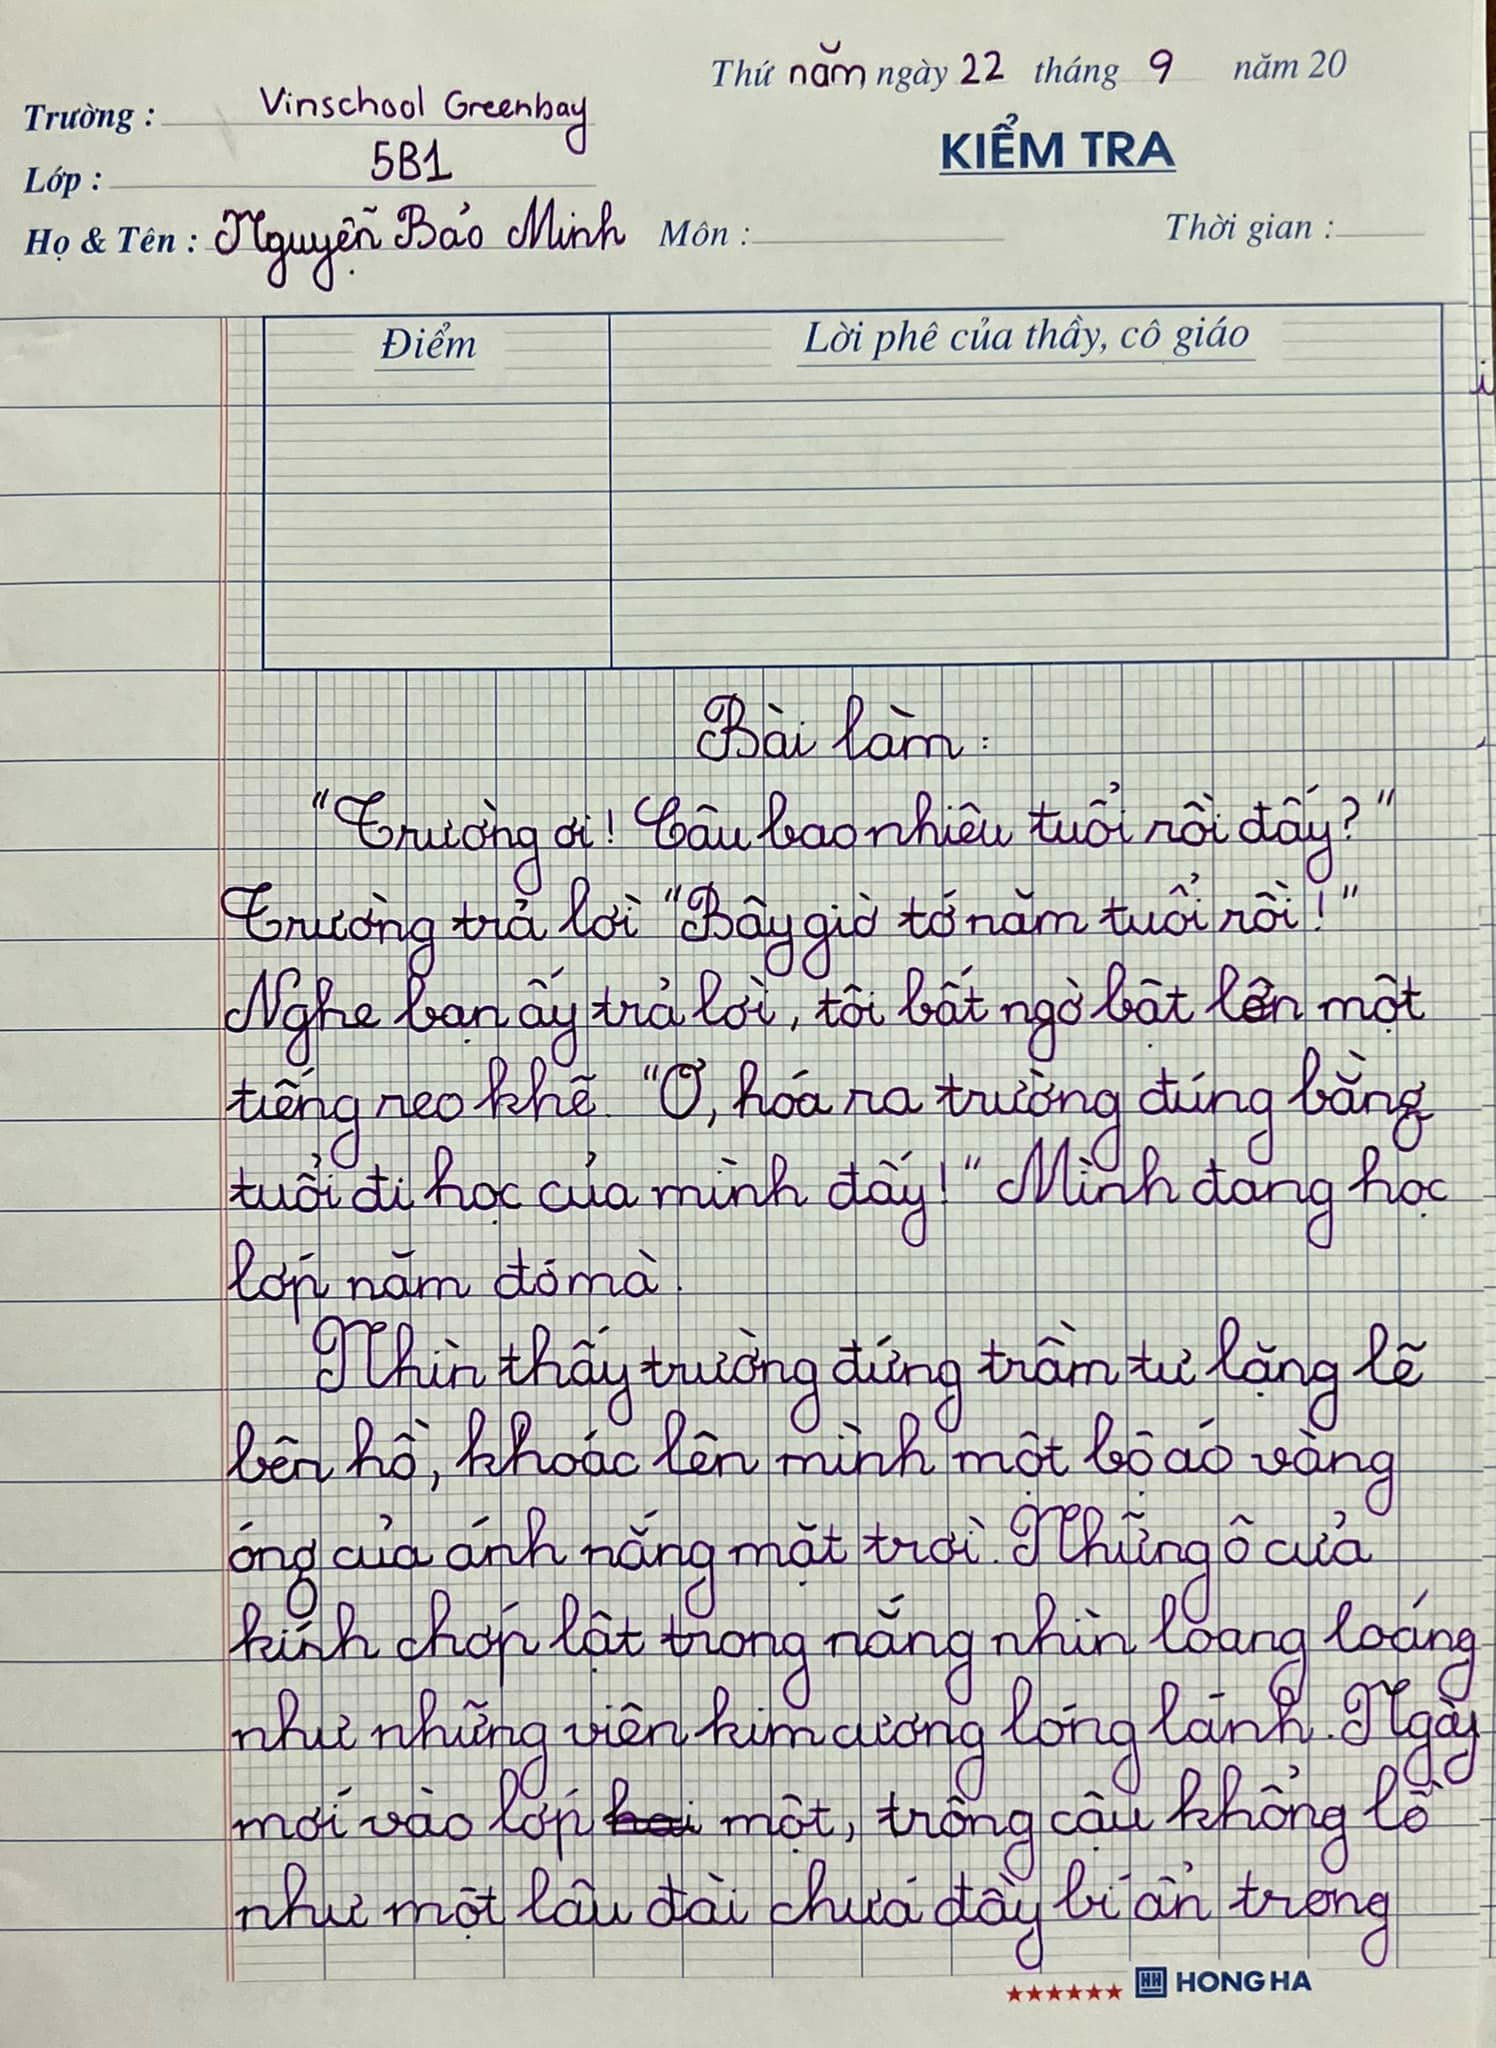 Thứ năm, ngày 22 tháng 9 năm 20
Trường : Vinschool Greenbay
Lớp : 5B1
KIỂM TRA
Họ & Tên : Nguyễn Bảo Minh Môn : Thời gian :
Điểm Lời phê của thầy, cô giáo
Bài làm :
"Trường ơi! Cậu bao nhiêu tuổi rồi đấy?"
Trường trả lời "Bây giờ tớ năm tuổi rồi!"
Nghe bạn ấy trả lời, tôi bất ngờ bật lên một
tiếng reo khẽ. "Ơ, hoá ra trường đúng bằng
tuổi đi học của mình đấy!" Mình đang học
lớp năm đó mà.
Nhìn thấy trường đứng trầm tư lặng lẽ
bên hồ, khoác lên mình một bộ áo vàng
óng của ánh nắng mặt trời. Những ô cửa
kính chớp lật trong nắng nhìn loang loáng
như những viên kim cương lóng lánh. Ngày
mới vào lớp hai một, trông cậu khổng lồ
như một lâu đài chứa đầy bí ẩn trong
HH HONG HA